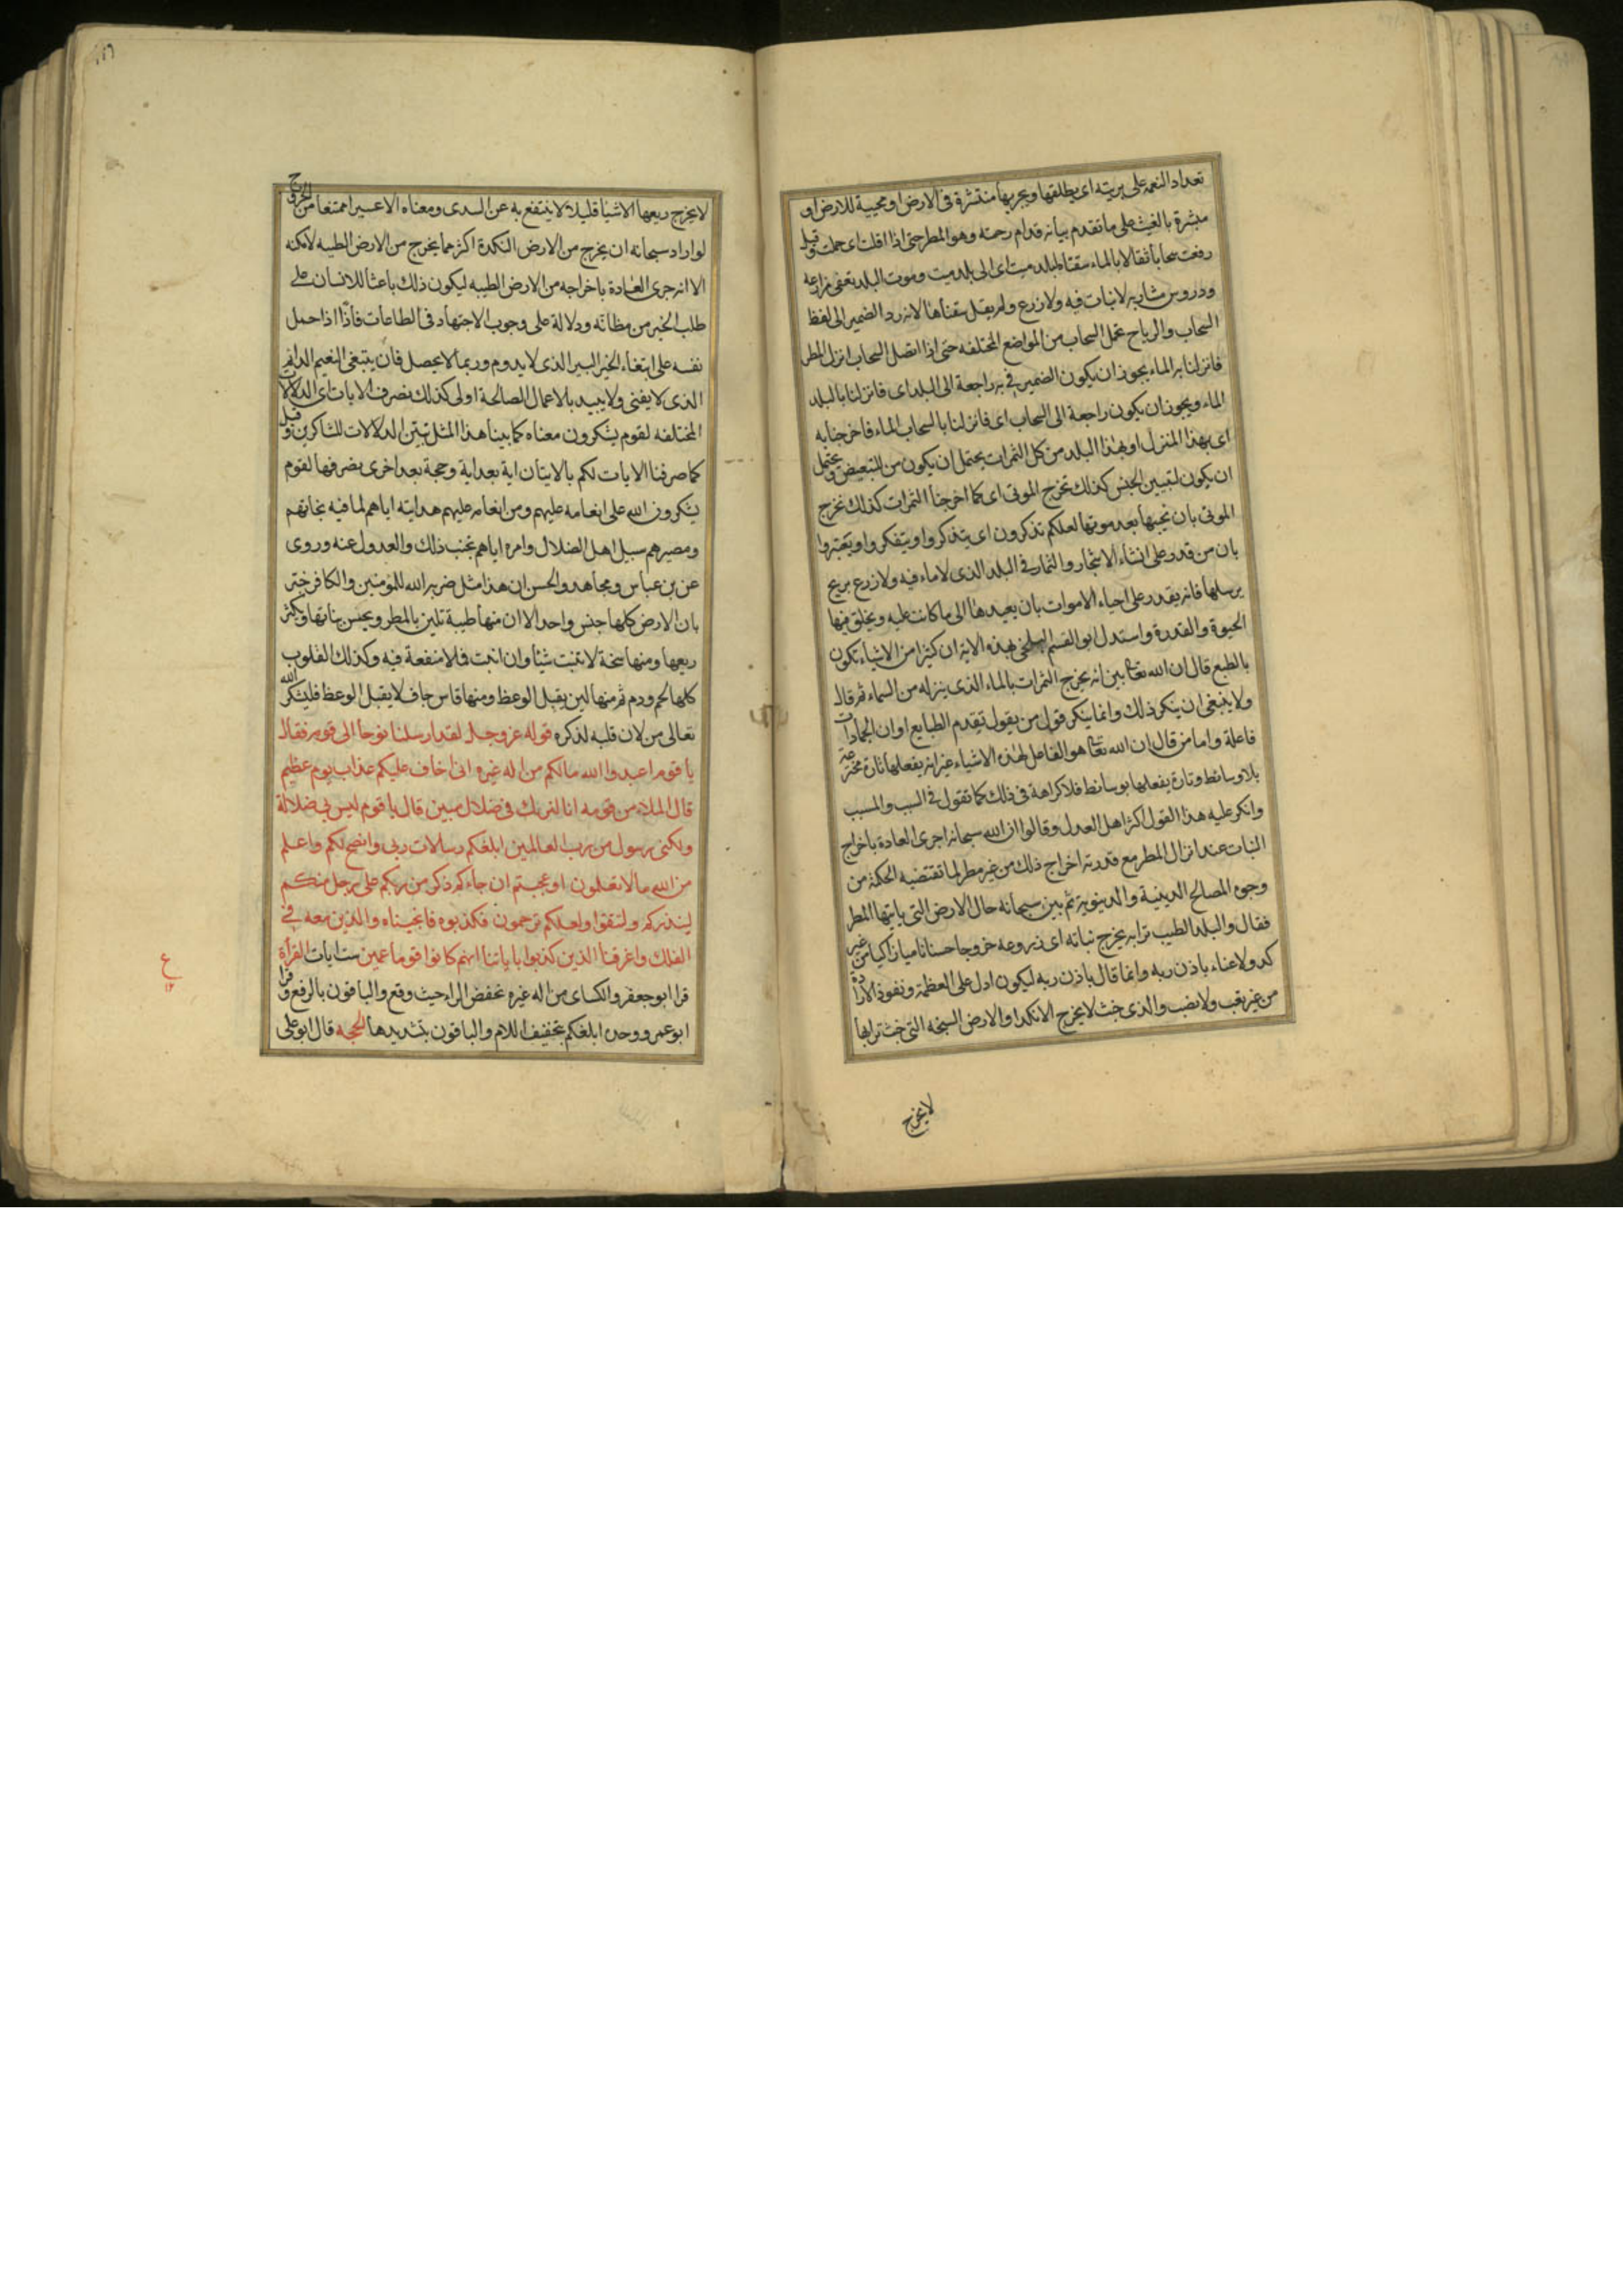 تعداد النعمه على بريته اى يطلقها ويجريها منتشرة فى الارض او محيية للارض او
مبشرة بالغيث على ما تقدم بيانه قدام رحمته وهو المطر حتى اذا اقلت اى حملت وقيل
رفعت سحابا ثقالا بالماء سقناه لبلد ميت اى الى بلد ميت وموت البلد تعفى مزارعه
ودروس مشاربه لا نبات فيه ولا زرع ولم يقل سقناها لانه رد الضمير الى لفظ
السحاب والرياح تحمل السحاب من المواضع المختلفه حتى اذا اتصل السحاب انزل المطر
فانزلنا به الماء يجوز ان يكون الضمير فى به راجعة الى البلد اى فانزلنا بالبلد
الماء ويجوز ان يكون راجعة الى السحاب اى فانزلنا بالسحاب الماء فاخرجنا به
اى بهذا المنزل او بهذا البلد من كل الثمرات يحتمل ان يكون من للتبعيض ويحتمل
ان يكون لتبيين الجنس كذلك نخرج الموتى اى كما اخرجنا الثمرات كذلك نخرج
الموتى بان نحييها بعد موتها لعلكم تذكرون اى يتذكروا ويتفكروا ويعتبروا
بان من قدر على انشاء الاشجار والثمار فى البلد الذى لا ماء فيه ولا زرع بريح
يرسلها فانه يقدر على احياء الاموات بان يعيدها الى ما كانت عليه ويخلق فيها
الحيوة والقدرة واستدل ابو القسم البلخى بهذه الاية ان كثيرا من الاشياء تكون
بالطبع قال ان الله تعا بين انه يخرج الثمرات بالماء الذى ينزله من السماء ثم قال
ولا ينبغى ان ينكر ذلك وانما ينكر قول من يقول بقدم الطبايع او ان الجمادات
فاعلة واما من قال ان الله تعا هو الفاعل لهذه الاشياء غير انه يفعلها تارة مخترعة
بلا وسائط وتارة يفعلها بوسائط فلا كراهة فى ذلك كما تقول فى السبب والمسبب
وانكر عليه هذا القول اكثر اهل العدل وقالوا ان الله سبحانه اجرى العادة باخراج
النبات عند انزال المطر مع قدرته اخراج ذلك من غير مطر لما تقتضيه الحكمة من
وجوه المصالح الدينية والدنيويه ثم بين سبحانه حال الارض التى ياتيها المطر
فقال والبلد الطيب ترابه يخرج نباته اى زروعه خروجا حسنا ناميا زاكيا من غير
كد ولا عناء باذن ربه وانما قال باذن ربه ليكون ادل على العظمة ونفوذ الارادة
من غير تعب ولا نصب والذى خبث لا يخرج الا نكدا والارض السبخه التى خبث ترابها
لا يخرج
لا يخرج ريعها الا شيئا قليلا لا ينتفع به عن السدى ومعناه الا عسيرا ممتنعا من الخروج
لو اراد سبحانه ان يخرج من الارض النكدة اكثر مما يخرج من الارض الطيبه لامكنه
الا انه جرى العادة باخراجه من الارض الطيبه ليكون ذلك باعثا للانسان على
طلب الخير من مظانه ودلالة على وجوب الاجتهاد فى الطاعات فاذا اذا حمل
نفسه على ابتغاء الخير اليسير الذى لا يدوم وربما لا يحصل فان يبتغى النعيم الدائم
الذى لا يفنى ولا يبيد بالاعمال الصالحة اولى كذلك نصرف الايات اى الدلالات
المختلفه لقوم يشكرون معناه كما بينا هذا المثل نبين الدلالات للشاكرين وقيل
كما صرفنا الايات لكم بالاتيان اية بعد اية وحجة بعد اخرى نصرفها لقوم
يشكرون الله على انعامه عليهم ومن انعامه عليهم هدايته اياهم لما فيه نجاتهم
ومصيرهم سبيل اهل الضلال وامره اياهم تجنب ذلك والعدول عنه وروى
عن بن عباس ومجاهد والحسن ان هذا مثل ضربه الله للمؤمنين والكافر خبر
بان الارض كلها جنس واحد الا ان منها طيبة تلين بالمطر ويحسن نباتها ويكثر
ريعها ومنها سبخة لا تنبت شيئا وان انبت فلا منفعة فيه وكذلك القلوب
كلها لحم ودم ثم منها لين يقبل الوعظ ومنها قاس جاف لا يقبل الوعظ فليشكر الله
تعالى من لان قلبه لذكره قوله عز وجل لقد ارسلنا نوحا الى قومه فقال
يا قوم اعبدوا الله ما لكم من اله غيره انى اخاف عليكم عذاب يوم عظيم
قال الملاء من قومه انا لنريك فى ضلال مبين قال يا قوم ليس بى ضلالة
ولكنى رسول من رب العالمين ابلغكم رسالات ربى وانصح لكم واعلم
من الله ما لا تعلمون او عجبتم ان جاءكم ذكر من ربكم على رجل منكم
لينذركم ولتتقوا ولعلكم ترحمون فكذبوه فانجيناه والذين معه فى
الفلك واغرقنا الذين كذبوا باياتنا انهم كانوا قوما عمين ست ايات القراة
قرا ابو جعفر والكساى من اله غيره بخفض الراء حيث وقع والباقون بالرفع وقرا
ابو عمر ووحده ابلغكم بتخفيف اللام والباقون بتشديدها الحجه قال ابو على
ع